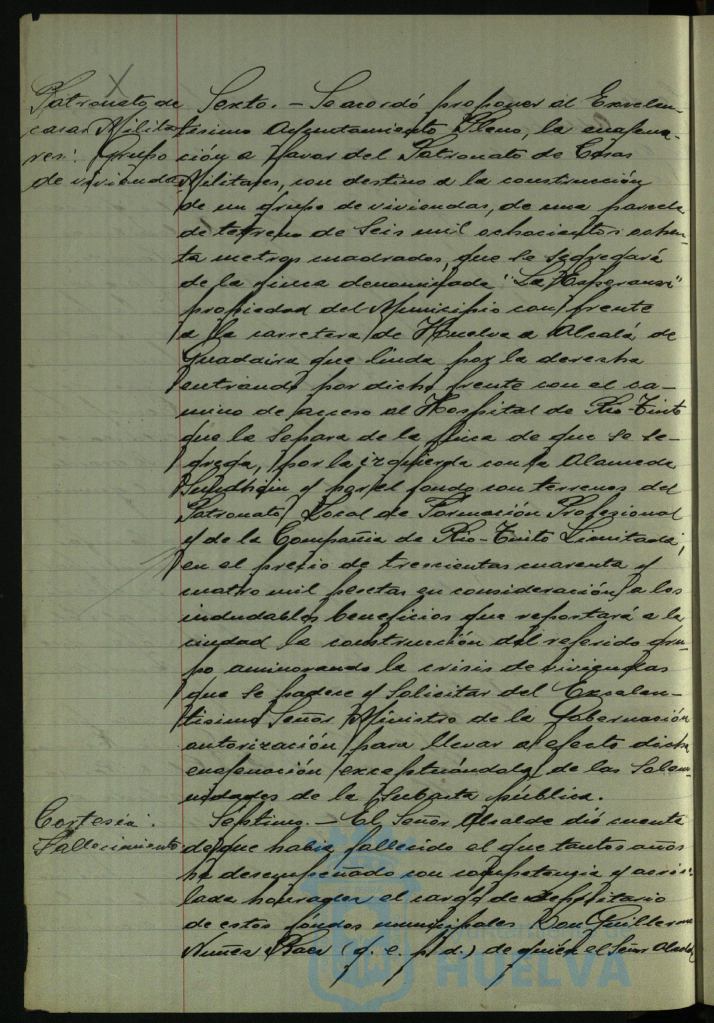 Patronato de
casas Milita
res: Grupo
de viviendas
Sexto. - Se acordó proponer al Excelen-
tísimo Ayuntamiento Pleno, la enagena-
ción a favor del Patronato de Casas
Militares, con destino a la construcción
de un grupo de viviendas, de una parcela
de terreno de Seis mil ochocientos ochen-
ta metros cuadrados, que se segregará
de la finca denominada "La Esperanza"
propiedad del Municipio con frente
a la carretera de Huelva a Alcalá de
Guadaira que linda por la derecha
entrando por dicho frente con el ca-
mino de acceso al Hospital de Rio-Tinto
que la separa de la finca de que se se-
grega, por la izquierda con la Alameda
Sundhein y por el fondo con terrenos del
Patronato Local de Formación Profesional
y de la Compañia de Rio-Tinto Limitada,
en el precio de trescientas cuarenta y
cuatro mil pesetas en consideración a los
indudables beneficios que reportará a la
ciudad la construcción del referido gru-
po aminorando la crisis de viviendas
que se padece y Solicitar del Excelen-
tísimo Señor Ministro de la Gobernación
autorización para llevar a efecto dicha
enagenación exceptuándola de las Solem-
nidades de la Subasta pública.
Cortesía:
Fallecimiento
Septimo. - El Señor Alcalde dió cuenta
de que había fallecido el que tantos años
ha desempeñado con competencia y acris-
lada honradez el cargo de depositario
de estos fondos municipales Don Guillermo
Nuñez (q. e. p. d.) de quién el Señor Alcalde
HUELVA